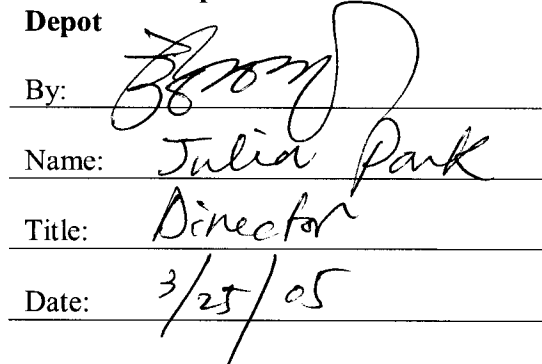 Depot
By:
Name: Julia Park
Title: Director
Date: 3/25/05